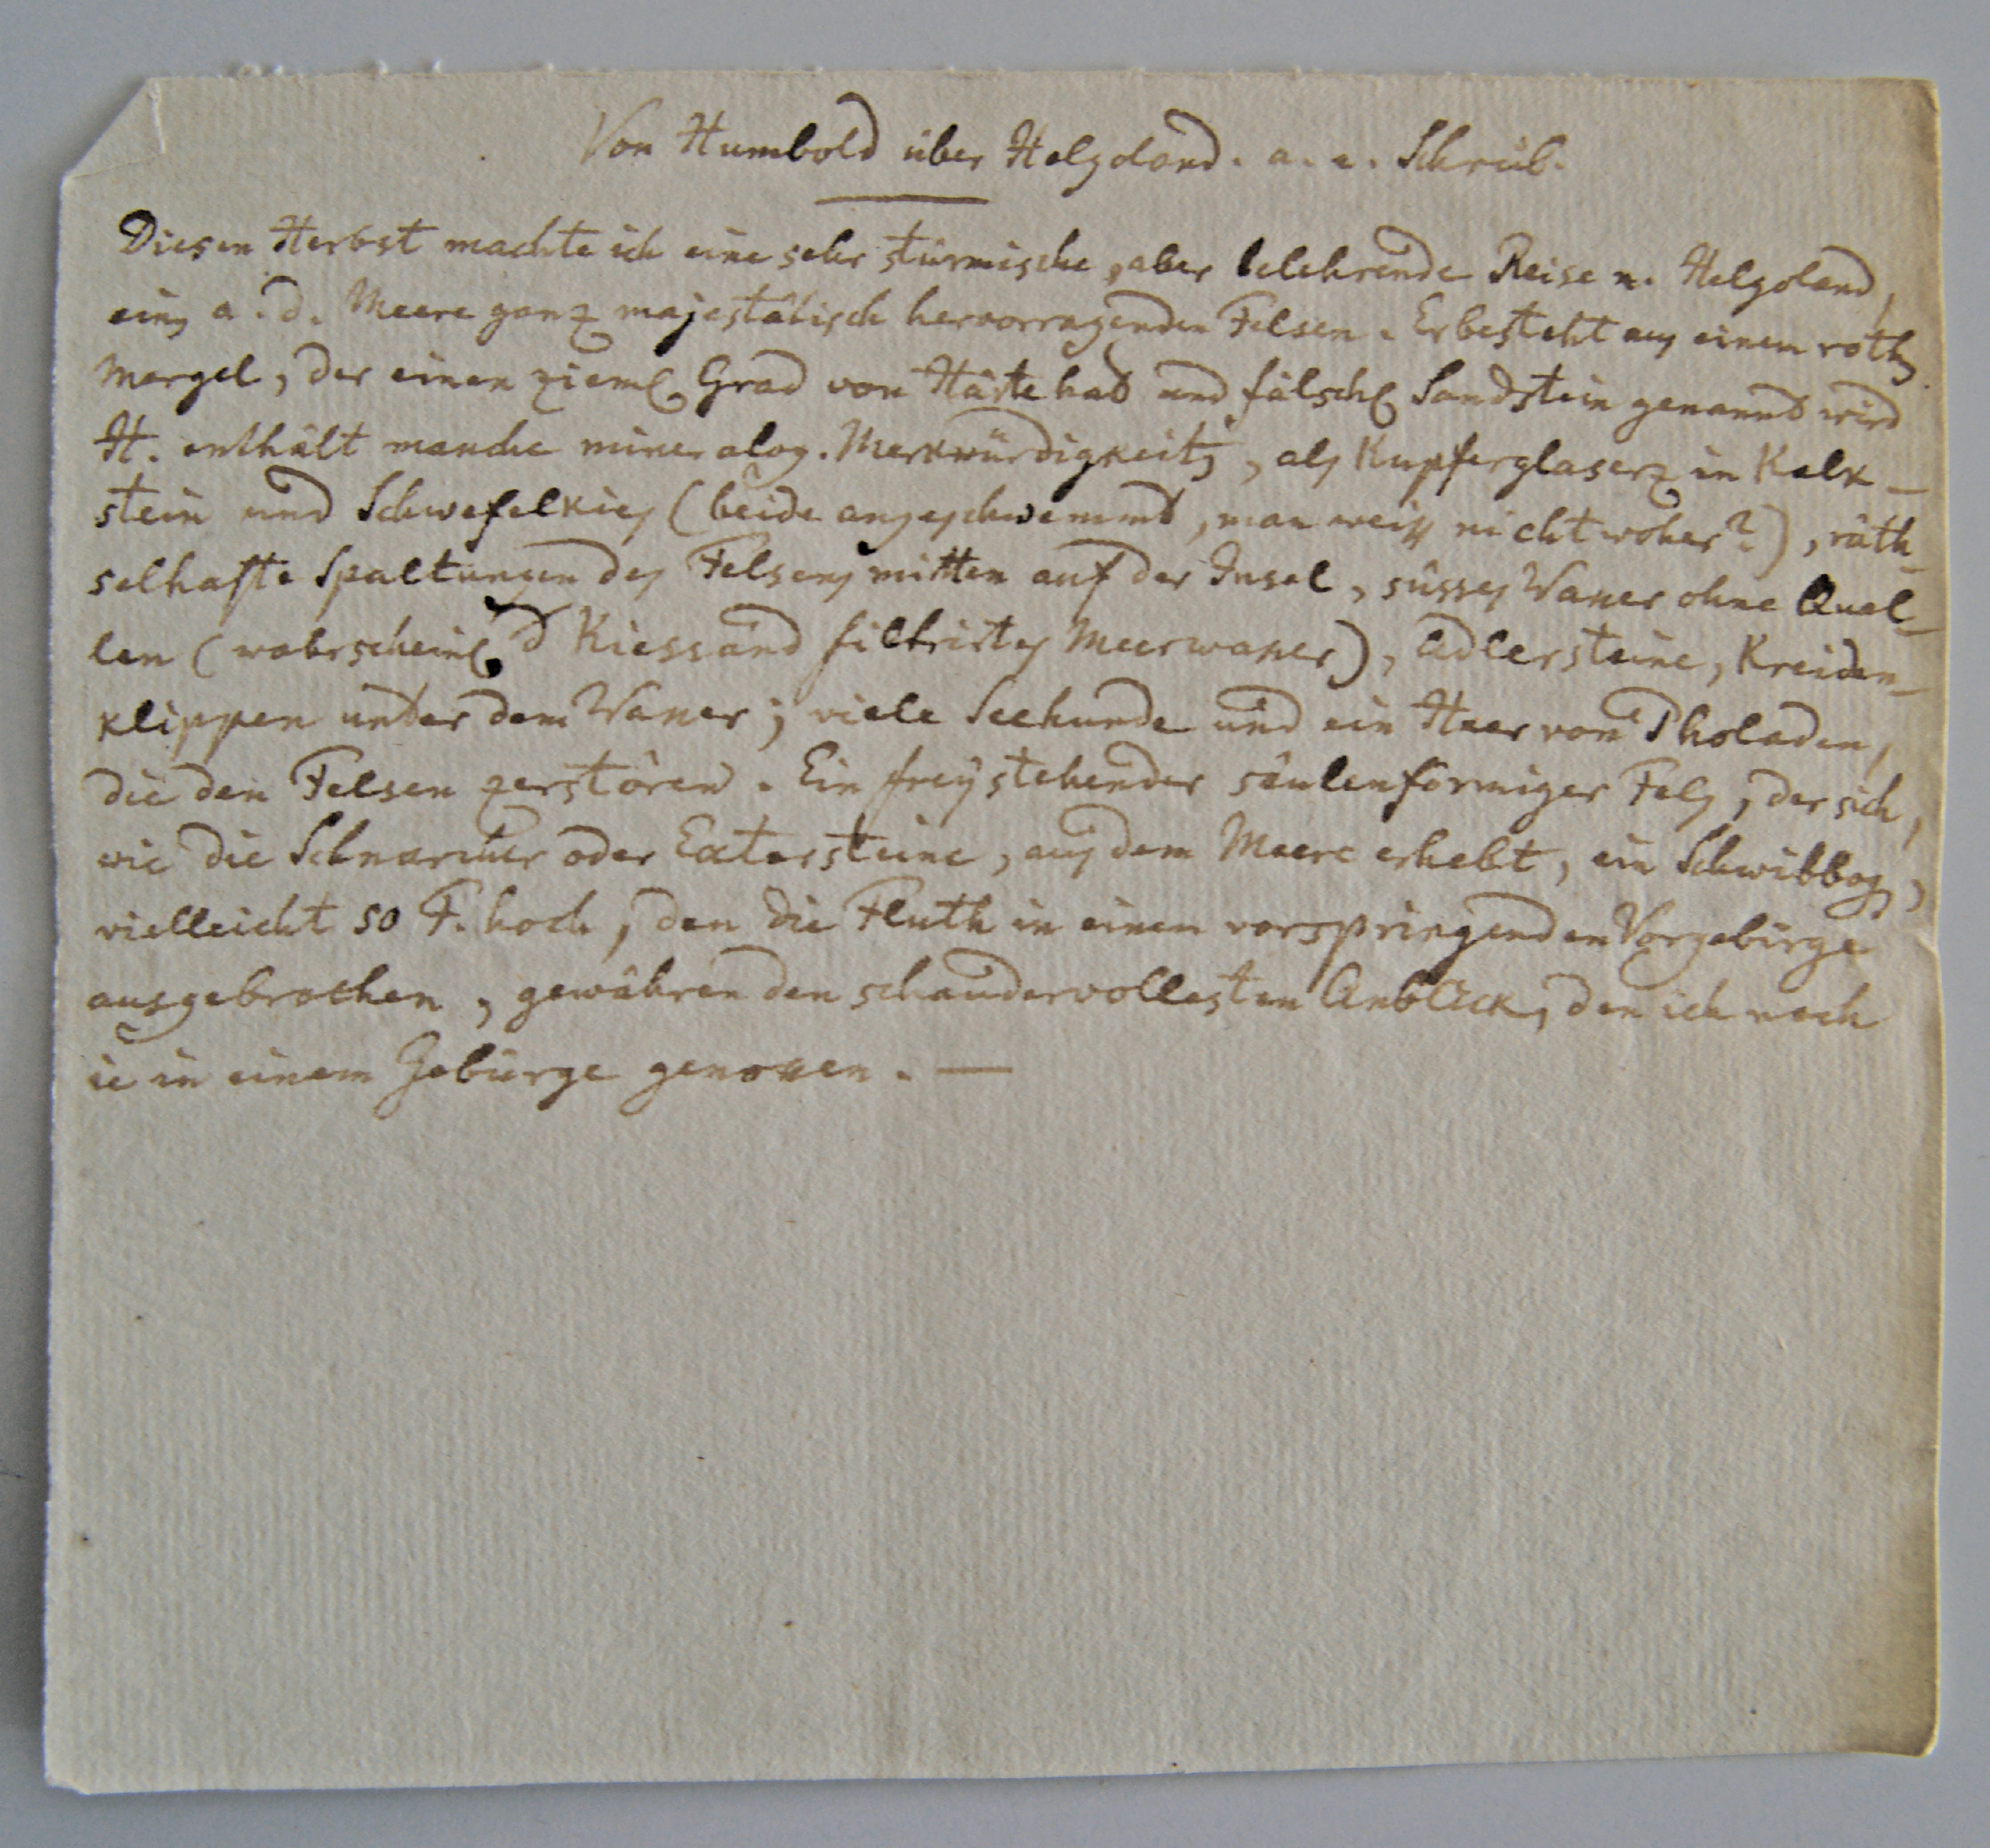 Von Humbold über Helgoland. a. e. Schreib.
Diesen Herbst machte ich eine sehr stürmische, aber belehrende Reise n. Helgoland,
eing a. d. Meere ganz majestätisch hervorragenden Felsen. Er besteht aus einem roth
Mergel, der einen zieml Grad von Härte hat und fälschl Sandstein genannt wird
H. enthält manche mineralog. Merkwürdigkeitz, als Kupferglaserz in Kalk-
stein und Schwefelkies (beide angeschwemmt, man weiss nicht woher?), räth-
selhafte Spaltungen des Felsens mitten auf der Insel, süsses Wasser ohne Quel-
len (wahrscheinl d Kiessand filtrirtes Meerwasser), Adlersteine, Kreiden-
klippen unter dem Wasser; viele Seehunde und ein Heer von Pholaden,
die den Felsen zerstören. Ein freÿstehender säulenförmiger Fels, der sich,
wie die Schnarcher oder Extersteine, aus dem Meere erhebt, ein Schwibbog,
vielleicht 50 F. hoch, den die Fluth in einem vorspringenden Vorgebürge
ausgebrochen, gewähren den schaudervollesten Anblick, den ich noch
ie in einem Gebürge genossen. —